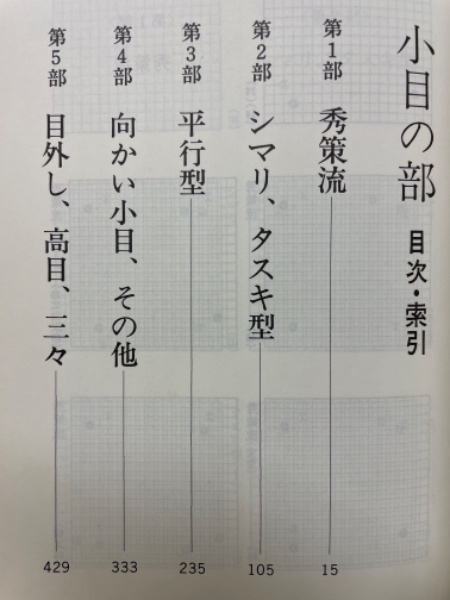 小目の部 目次・索引
第1部 秀策流 15
第2部 シマリ、タスキ型 105
第3部 平行型 235
第4部 向かい小目、その他 333
第5部 目外し、高目、三々 429